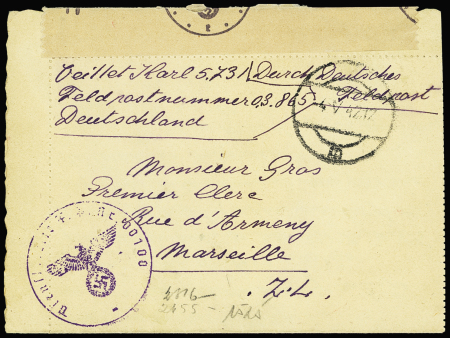 Karl 573/ Durch Deutsches
Feldpostnummer 03.865 Feldpost
Deutschland
4.V.42.17
b
Monsieur Gros
Premier Clerc
Rue d'Armeny
Marseille
Z.L.
00100
2455 -
e